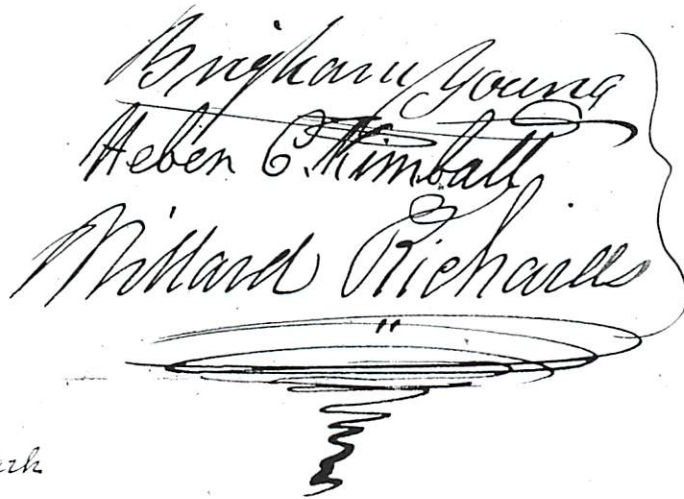 Brigham Young
Heber C. Kimball
Willard Richards